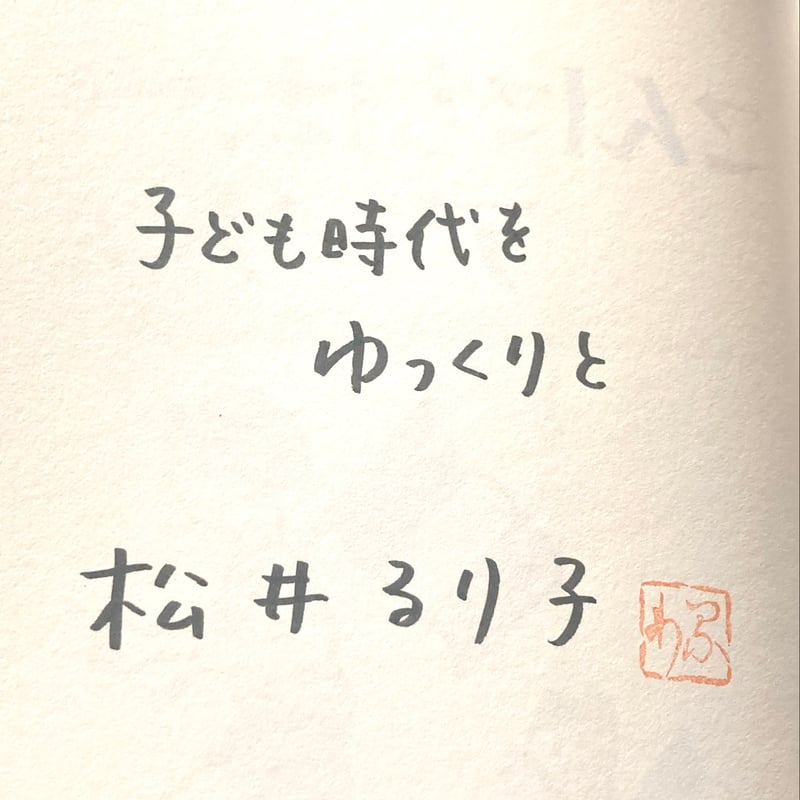 子ども時代を
ゆっくりと
松井るり子